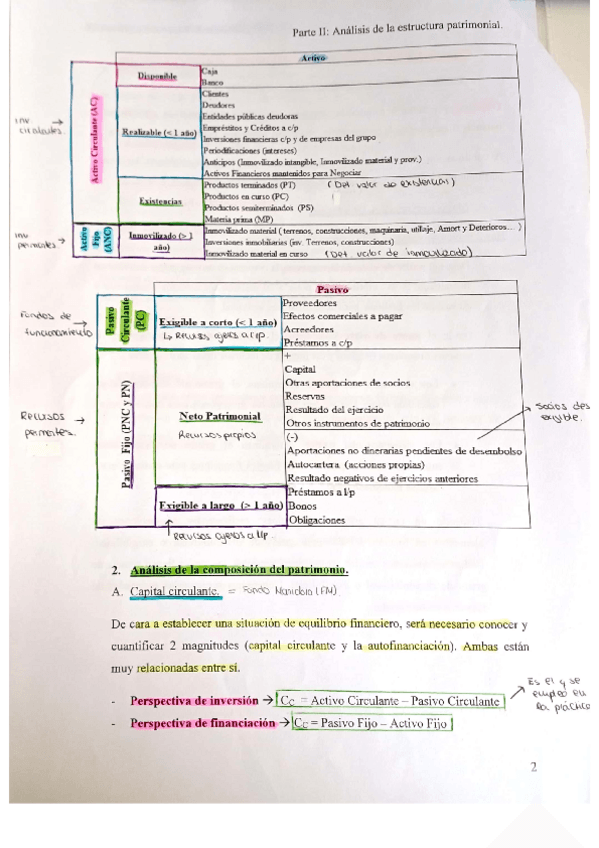 Parte II: Análisis de la estructura patrimonial.
Activo
Activo Circulante (AC)
Disponible
Caja
Banco
Inv
circulantes.
Realizable (< 1 año)
Clientes
Deudores
Entidades públicas deudoras
Empréstitos y Créditos a c/p
Inversiones financieras c/p y de empresas del grupo
Periodificaciones (intereses)
Anticipos (Inmovilizado intangible, Inmovilizado material y prov.)
Activos Financieros mantenidos para Negociar
Existencias
Productos terminados (PT) (Det valor de existencias)
Productos en curso (PC)
Productos semiterminados (PS)
Materia prima (MP)
Inv
permantes.
Activo Fijo (ANC)
Inmovilizado (> 1 año)
Inmovilizado material (terrenos, construcciones, maquinaria, utillaje, Amort y Deterioros... )
Inversiones inmobiliarias (inv. Terrenos, construcciones)
Inmovilizado material en curso (Det valor de inmovilizado)
Pasivo
Fondos de
funcionamiento
Pasivo Circulante (PC)
Exigible a corto (< 1 año)
↳ Recursos ajenos a c/p.
Proveedores
Efectos comerciales a pagar
Acreedores
Préstamos a c/p
Recursos
permantes.
Pasivo Fijo (PNC y PN)
Neto Patrimonial
Recursos propios
+
Capital
Otras aportaciones de socios
Reservas
Resultado del ejercicio
Otros instrumentos de patrimonio
(-)
Aportaciones no dinerarias pendientes de desembolso
Autocartera (acciones propias)
Resultado negativos de ejercicios anteriores
Socios des
exigible.
Exigible a largo (> 1 año)
Préstamos a l/p
Bonos
Obligaciones
Recursos ajenos a l/p.
2. Análisis de la composición del patrimonio.
A. Capital circulante. = Fondo Maniobra (FM)
De cara a establecer una situación de equilibrio financiero, será necesario conocer y
cuantificar 2 magnitudes (capital circulante y la autofinanciación). Ambas están
muy relacionadas entre si.
Es el q se
emplea en
la práctica
- Perspectiva de inversión → CC = Activo Circulante – Pasivo Circulante
- Perspectiva de financiación → CC = Pasivo Fijo – Activo Fijo
2